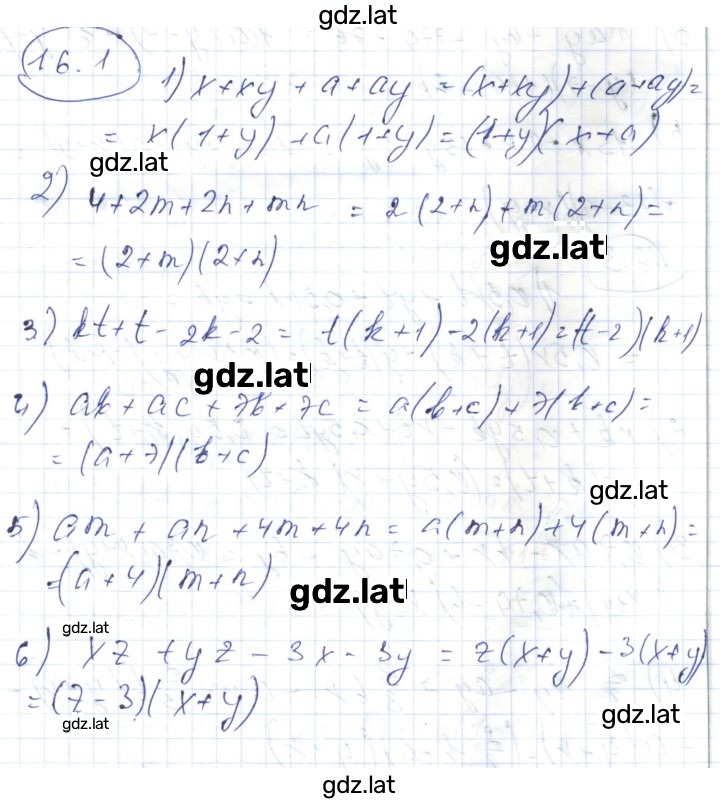 gdz.lat
16.1
1) x+xy + a + ay = (x+xy)+(a+ay)=
= x(1+y)+a(1+y)=(1+y)(x+a)
gdz.lat
2) 4+2m+2n+mn = 2(2+n)+m(2+n)=
gdz.lat
= (2+m)(2+n)
3) kt+t-2k-2 = t(k+1)-2(k+1)=(t-2)(k+1)
gdz.lat
4) ab + ac + 7b + 7c = a(b+c)+7(b+c)=
= (a+7)(b+c)
gdz.lat
5) am + an + 4m + 4n = a(m+n)+4(m+n)=
=(a+4)(m+n)
gdz.lat
gdz.lat
6) xz + yz - 3x - 3y = z(x+y)-3(x+y)
= (z-3)(x+y)
gdz.lat
gdz.lat
gdz.lat